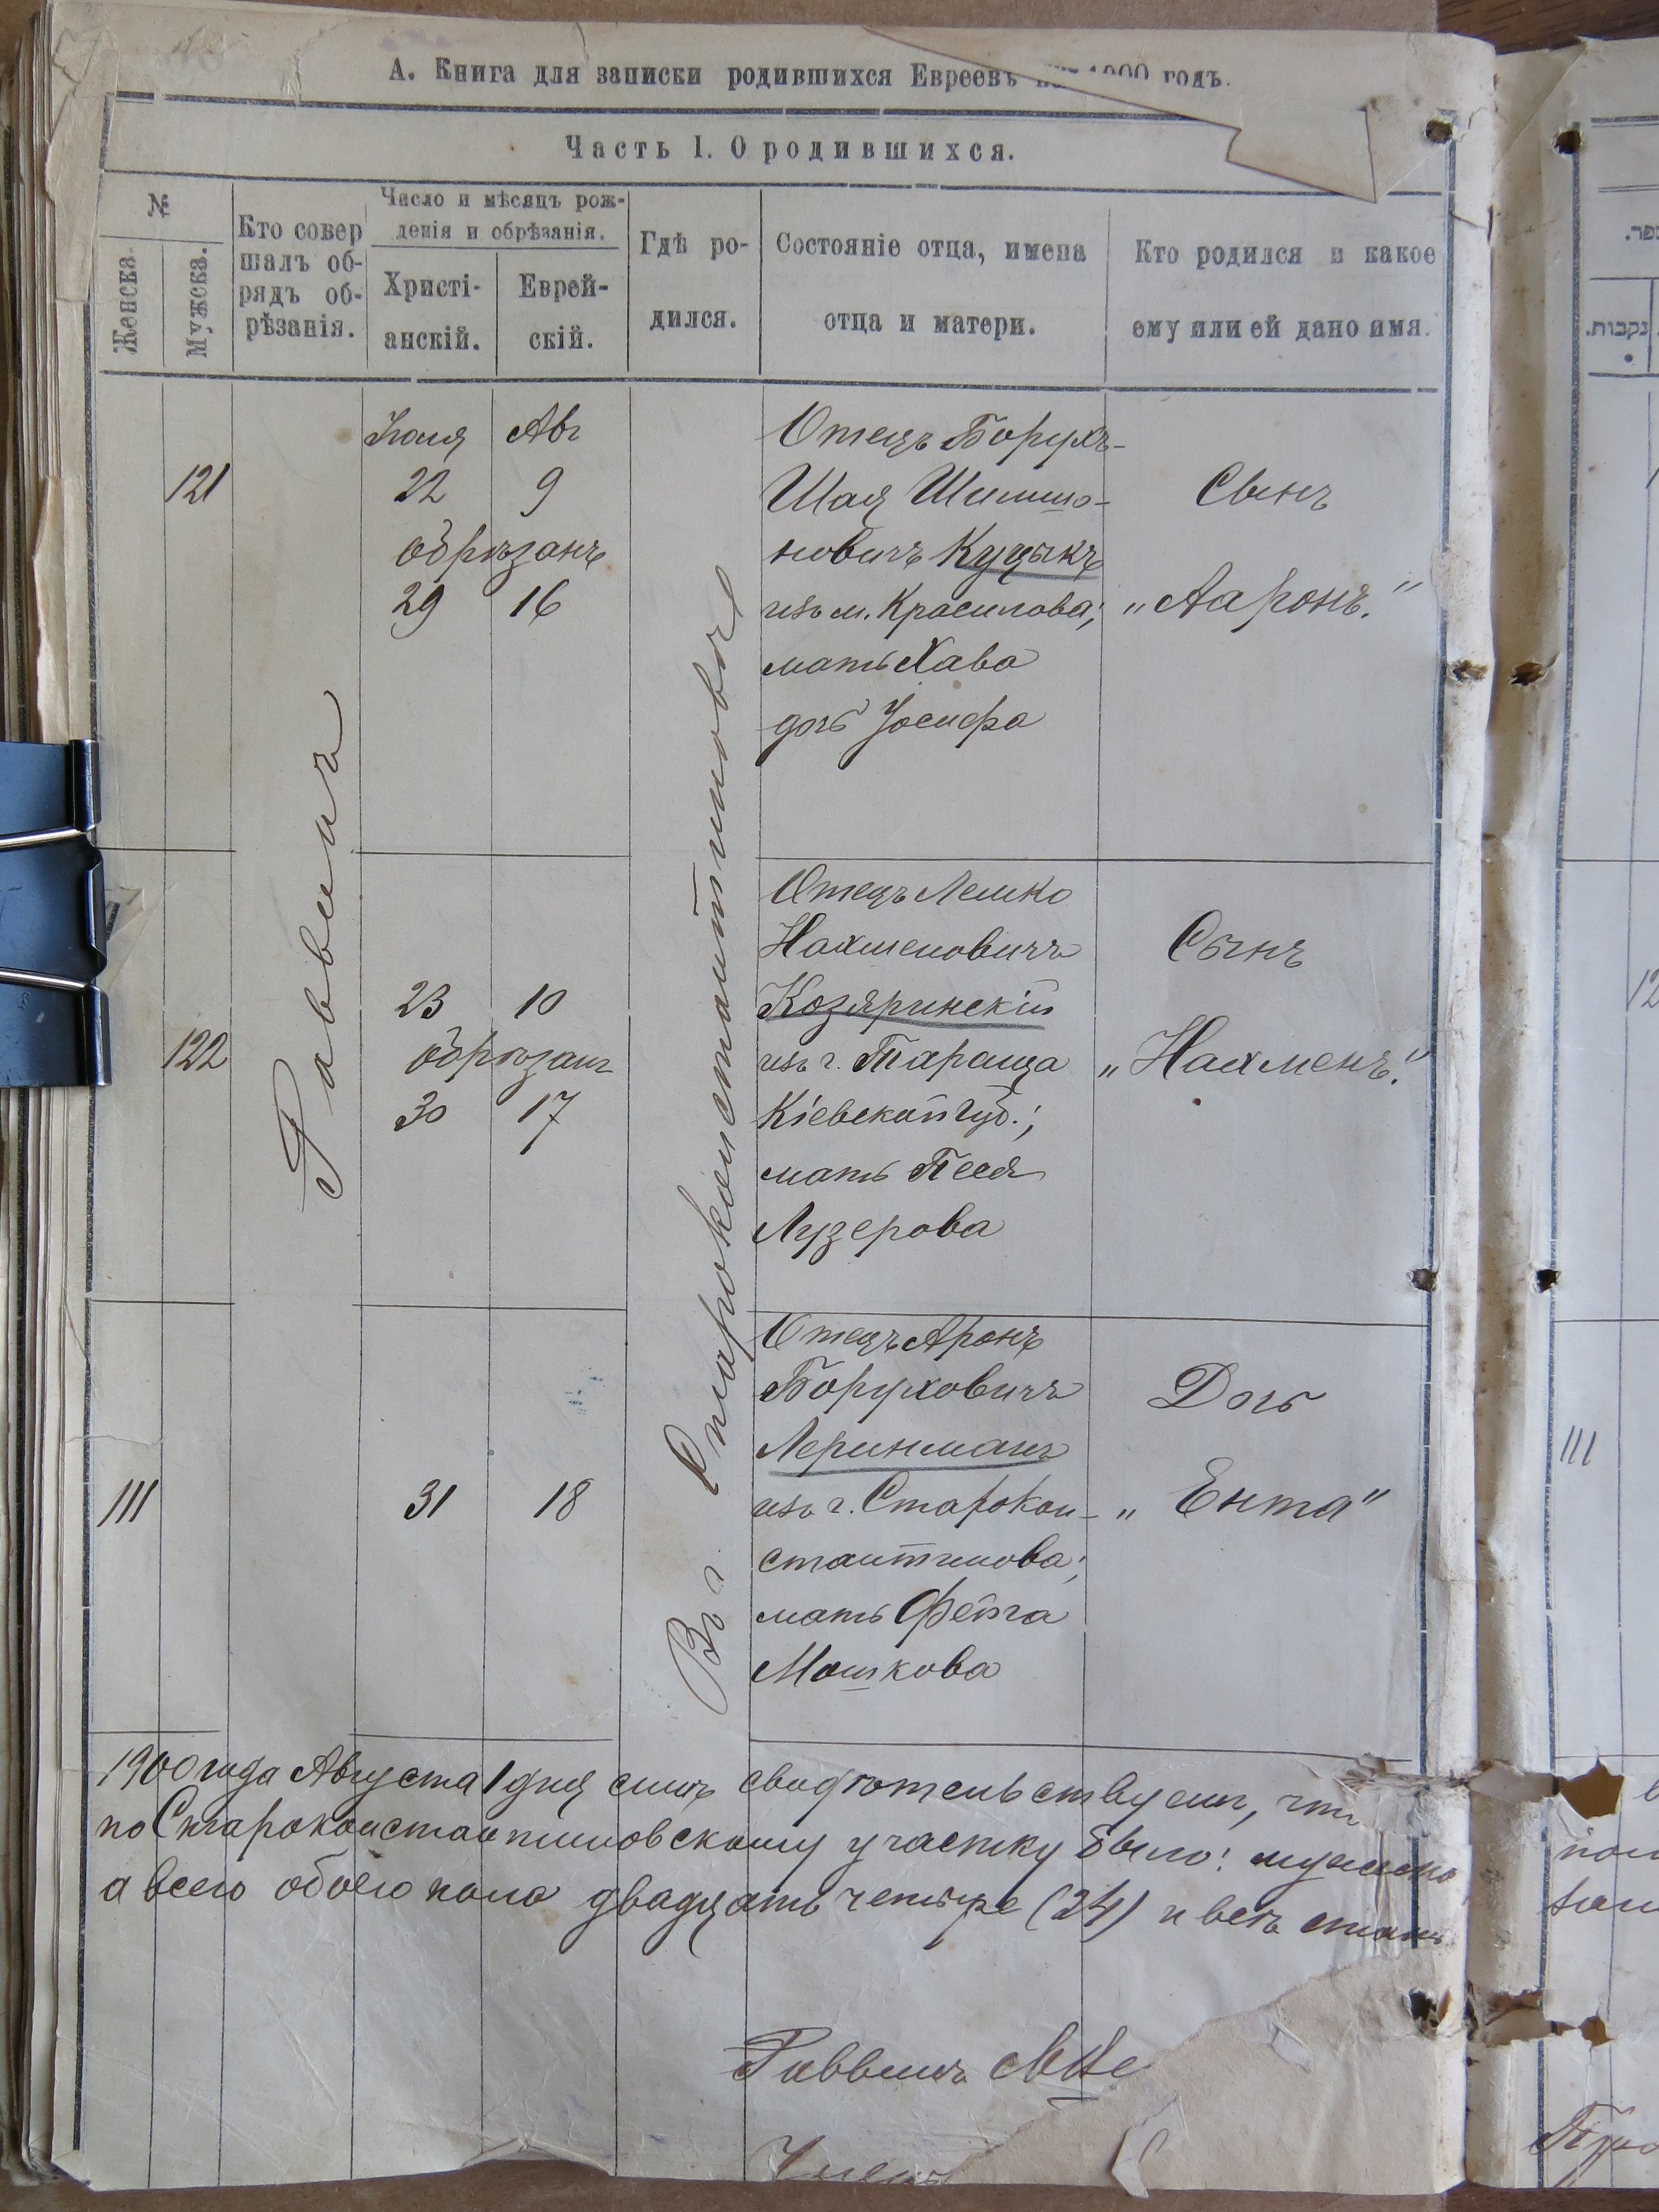 А. Книга для записки родившихся Евреевъ 1900 годъ.
Часть I. О родившихся.
№
Женска.
Мужска.
Кто совер
шалъ об-
рядъ об-
рѣзанія.
Число и мѣсяцъ рож-
денія и обрѣзанія.
Христі-
анскій.
Еврей-
скій.
Гдѣ ро-
дился.
Состояніе отца, имена
отца и матери.
Кто родился и какое
ему или ей дано имя.
Раввинъ
Въ г. Староконстантиновѣ
121
Іюля Ави
22 9
обрѣзанъ
29 16
Отецъ Борухъ-
Шая Шимшо-
новичъ Куцыкъ
изъ м. Красилова;
мать Хава
дочь Іосифа
Сынъ
„Ааронъ."
122
23 10
обрѣзанъ
30 17
Отецъ Лемко
Нахменовичъ
Козяринскій
изъ г. Тараща
Кіевской губ.;
мать Песя
Лузерова
Сынъ
„Нахменъ."
111
31 18
Отецъ Аронъ
Боруховичъ
Леринманъ
изъ г. Старокон-
стантинова;
мать Фейга
Мошкова
Дочь
„Ента"
1900 года Августа 1 дня симъ свидѣтельствуемъ, что
по Староконстантиновскому участку было: мужска
а всего обоего пола двадцать четыре (24) и всѣ
Раввинъ
נקבות.
111